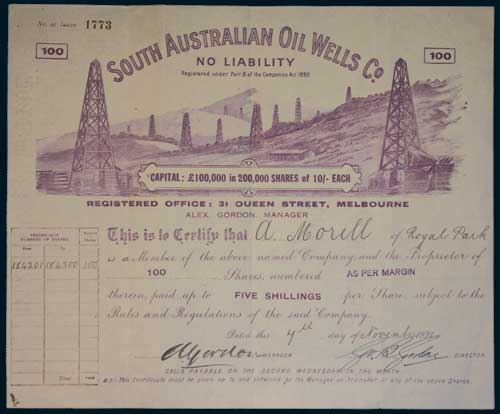 No. of Issue 1773
100
100
SOUTH AUSTRALIAN OIL WELLS Co
NO LIABILITY
Registered under Part II of the Companies Act 1890
CAPITAL: £100,000 in 200,000 SHARES of 10/- EACH
REGISTERED OFFICE: 31 QUEEN STREET, MELBOURNE
ALEX. GORDON, MANAGER
This is to Certify that A. Morell of Royal Park
is a Member of the above named Company, and the Proprietor of
100 Shares, numbered AS PER MARGIN
therein, paid up to FIVE SHILLINGS per Share, subject to the
Rules and Regulations of the said Company.
Dated this 4th day of November
PROGRESSIVE NUMBERS OF SHARES.
184201 184300 100
Total
AGordon MANAGER
DIRECTOR
CALLS PAYABLE ON THE SECOND WEDNESDAY IN THE MONTH
N.B.: This Certificate must be given up to and retained by the Manager on transfer of any of the above Shares.